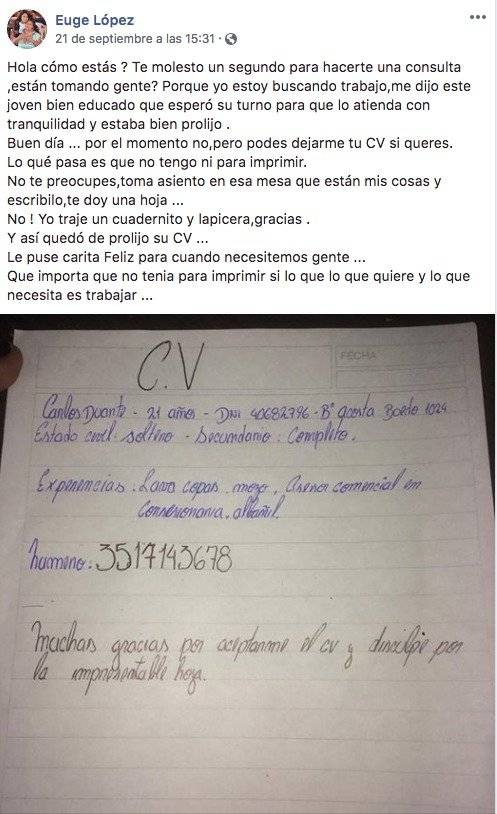 Euge López
21 de septiembre a las 15:31 ·
Hola cómo estás ? Te molesto un segundo para hacerte una consulta
,están tomando gente? Porque yo estoy buscando trabajo,me dijo este
joven bien educado que esperó su turno para que lo atienda con
tranquilidad y estaba bien prolijo .
Buen día ... por el momento no,pero podes dejarme tu CV si queres.
Lo qué pasa es que no tengo ni para imprimir.
No te preocupes,toma asiento en esa mesa que están mis cosas y
escribilo,te doy una hoja ...
No ! Yo traje un cuadernito y lapicera,gracias .
Y así quedó de prolijo su CV ...
Le puse carita Feliz para cuando necesitemos gente ...
Que importa que no tenia para imprimir si lo que lo que quiere y lo que
necesita es trabajar ...
C.V
FECHA
Carlos Duarte - 21 años - DNI 40682796 - Bº acosta Boeto 1024
Estado civil: soltero - Secundario: Completo.
Experiencias. Lava copas. mozo, Asesor comercial en
Consesionaria. albañil.
numero: 3517143678
Muchas gracias por aceptarme el cv y disculpe por
la impresentable hoja.